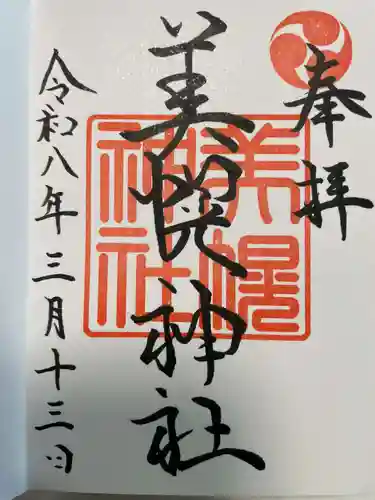 奉拝
美幌神社
令和八年三月十三日
美幌
神社